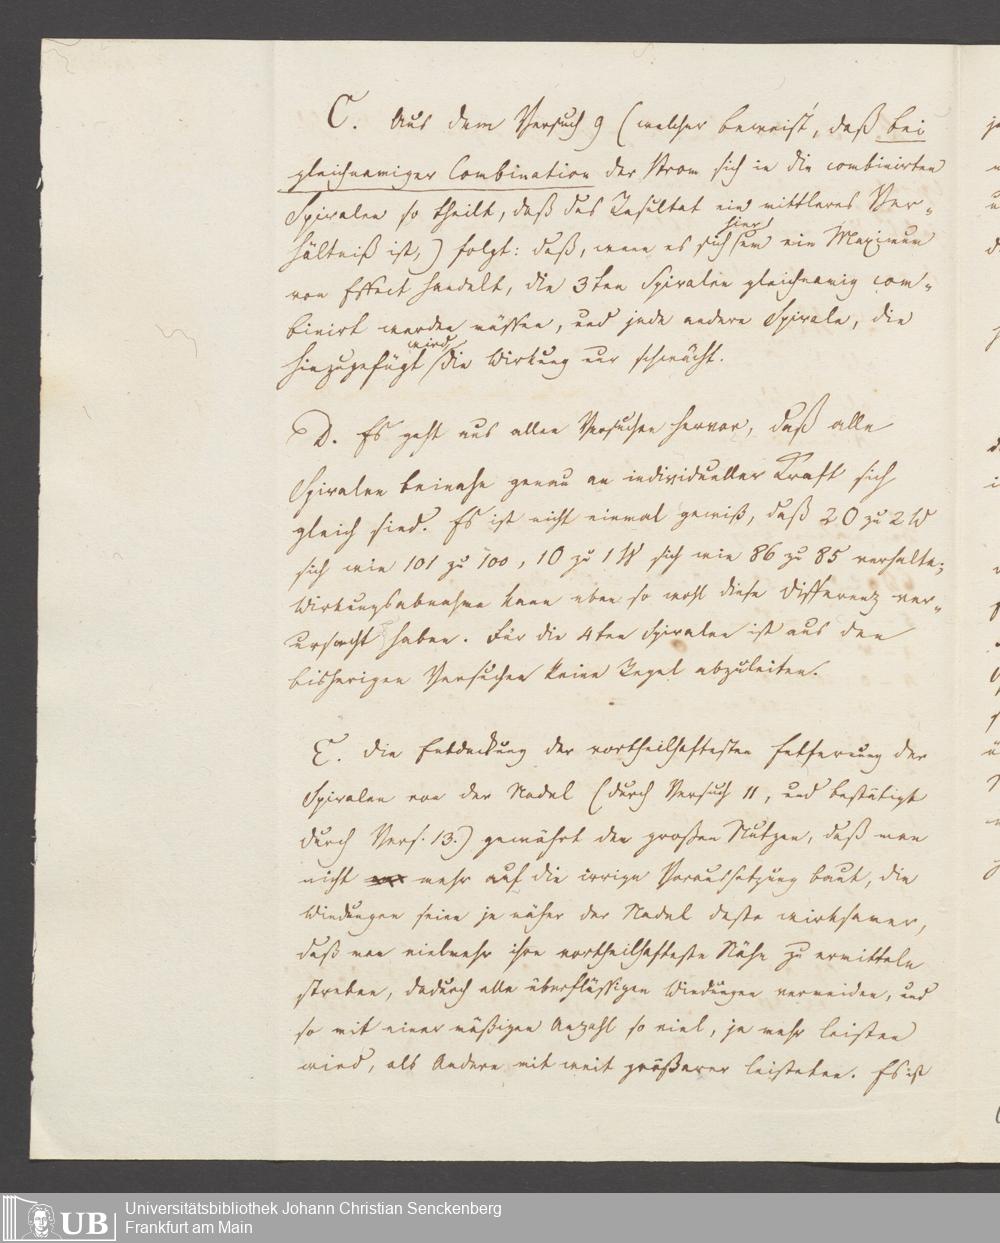 C. Aus dem Versuch 9 (welcher beweist, daß bei
gleichnamiger Combination der Strom sich in die combinirten
Spiralen so theilt, daß das Resultat ein mittleres Ver-
hältniß ist,) folgt: daß, wenn es sich hier um ein Maximum
von Effect handelt, die 3ten Spiralen gleichnamig com-
binirt werden müssen, und jede andere Spirale, die
hinzugefügt wird die Wirkung nur schwächt.
D. Es geht aus allen Versuchen hervor, daß alle
Spiralen beinahe genau an individueller Kraft sich
gleich sind. Es ist nicht einmal gewiß, daß 2 O zu 2 W
sich wie 101 zu 100, 1 O zu 1 W sich wie 86 zu 85 verhalte;
Wirkungsabnahme kann eben so wohl diese Differenz ver-
ursacht haben. Für die 4ten Spiralen ist aus den
bisherigen Versuchen keine Regel abzuleiten.
E. Die Entdeckung der vortheilhaftesten Entfernung der
Spiralen von der Nadel (durch Versuch 11, und bestätigt
durch Vers. 13.) gewährt den großen Nutzen, daß man
nicht mehr auf die irrige Voraussetzung baut, die
Windungen seien je näher der Nadel desto wirksamer,
daß man vielmehr ihre vortheilhafteste Nähe zu ermitteln
streben, dadurch alle überflüssigen Windungen vermeiden, und
so mit einer mäßigen Anzahl so viel, ja mehr leisten
wird, als Andere mit weit größerer leisteten. Es ist
UB
Universitätsbibliothek Johann Christian Senckenberg
Frankfurt am Main